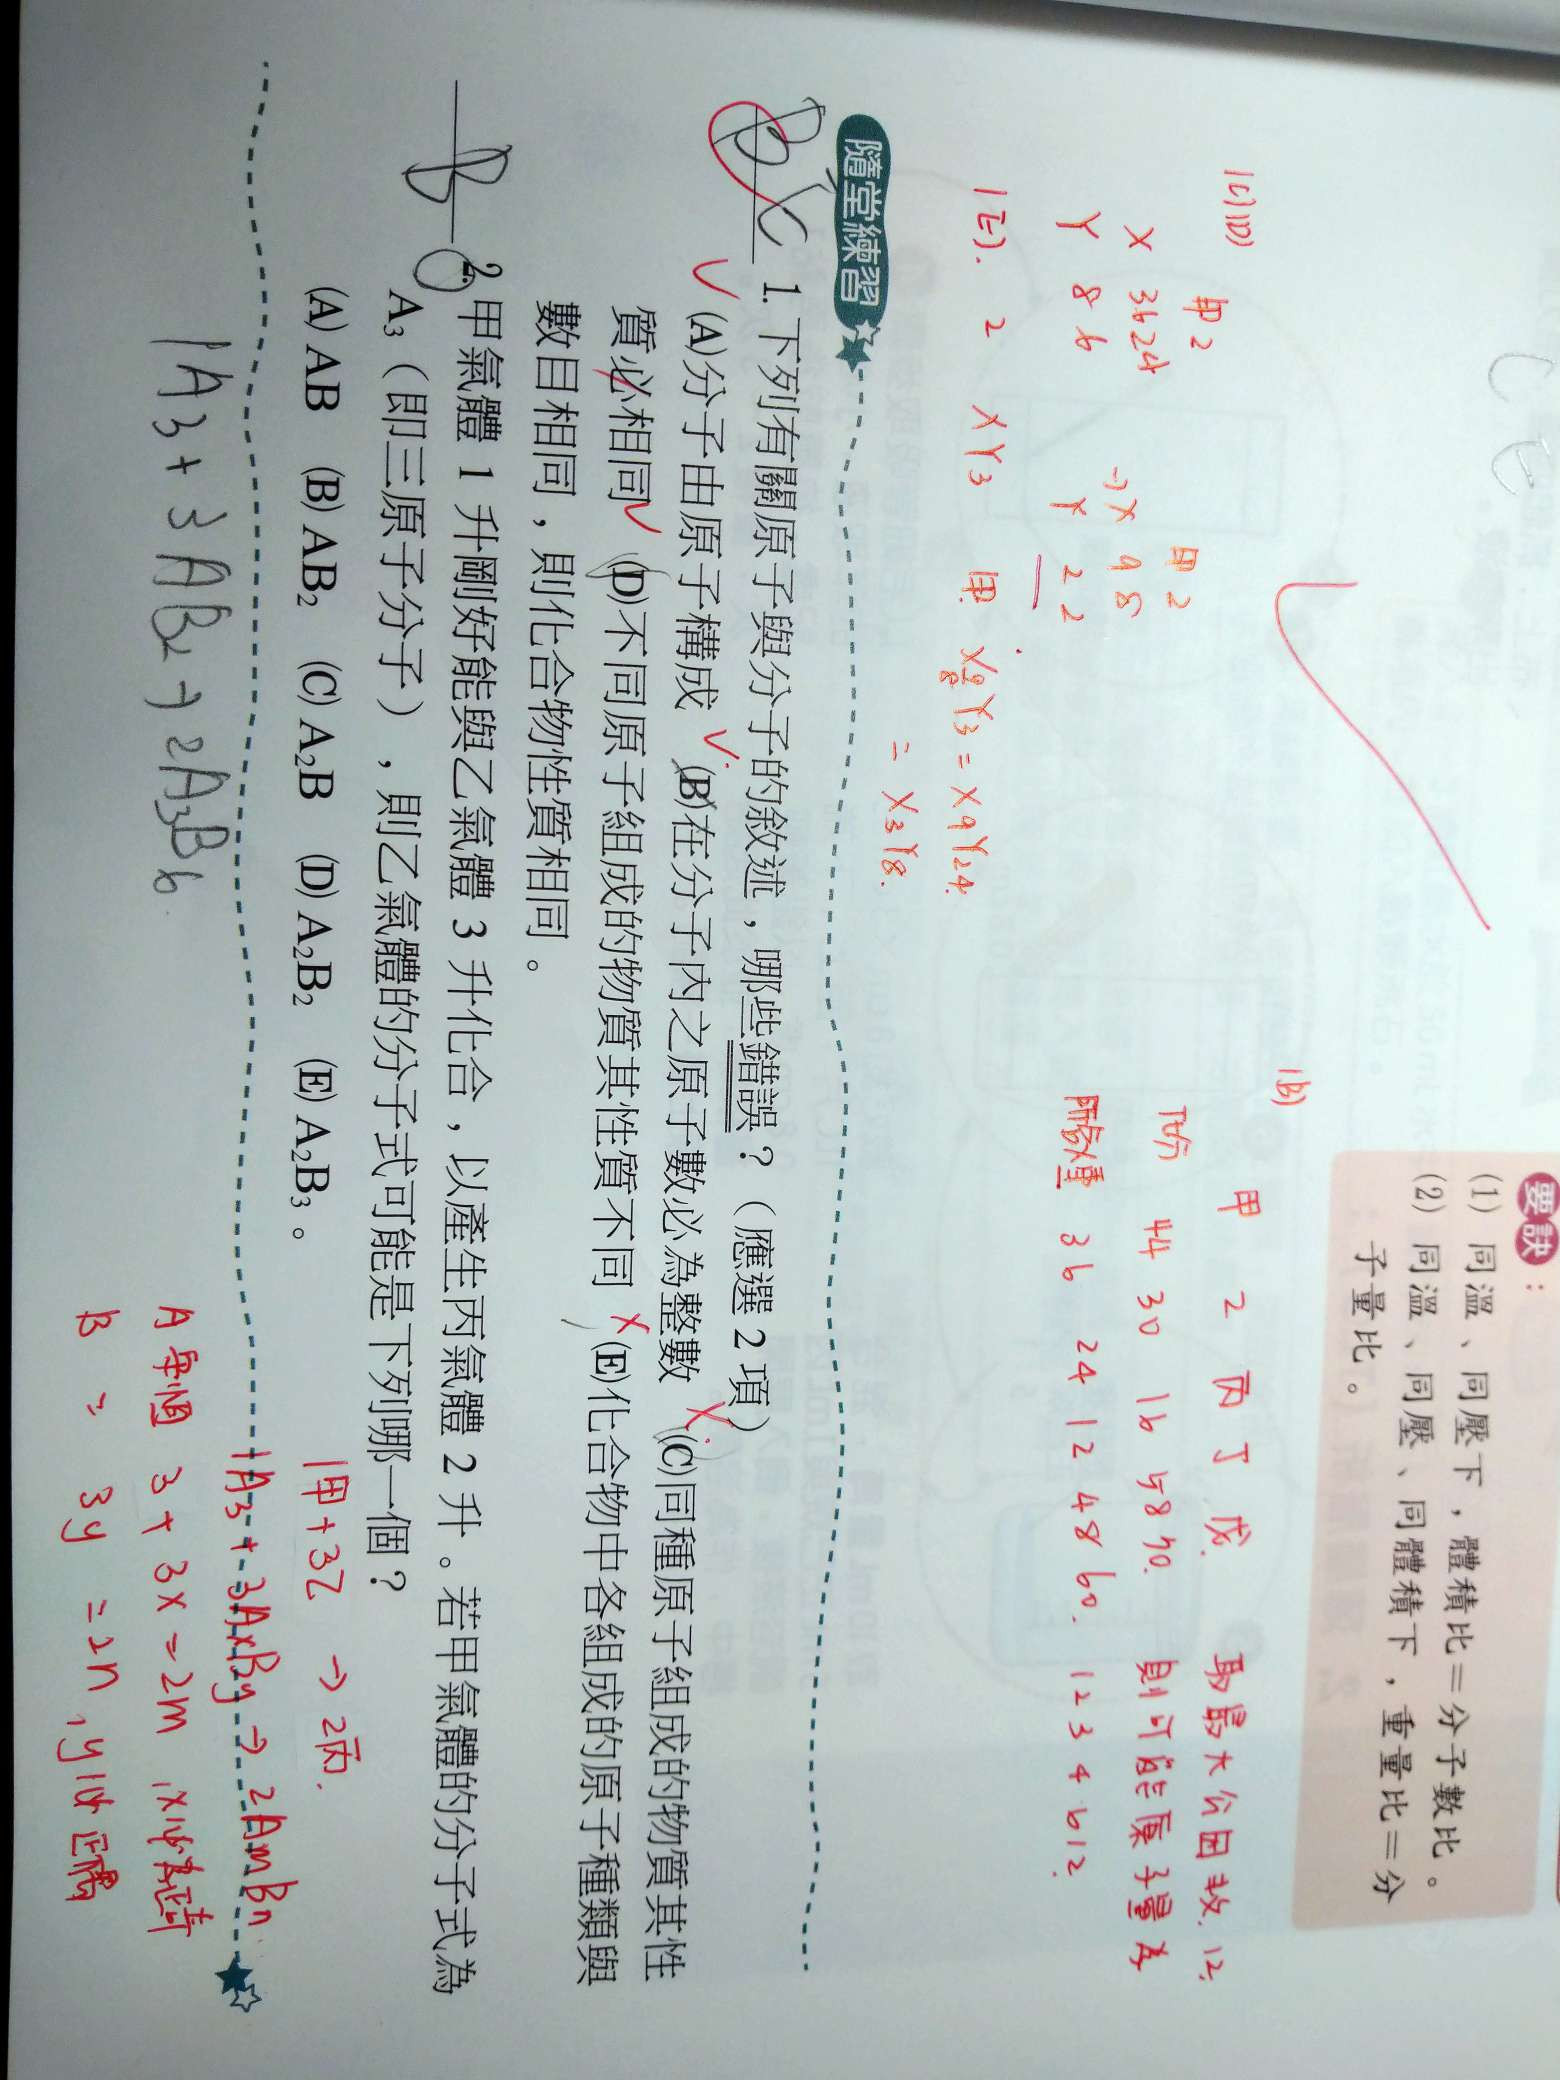 要訣：
(1) 同溫、同壓下，體積比＝分子數比。
(2) 同溫、同壓、同體積下，重量比＝分
子量比。
1B)
甲 2 丙 丁 戊. 取最大公因數. 12.
T分 44 30 16 58 70. 則可能原子量為
所含X重 36 24 12 48 60. 12 3 4 6 12.
1C)1D)
甲 2 甲 2
X 36 24 → X 9 8
Y 8 6 Y 2 2
1E). 2 XY3 甲. Y3 = X9Y24.
= X3Y8.
隨堂練習
BC 1. 下列有關原子與分子的敘述，哪些錯誤？（應選 2 項）
(A)分子由原子構成 (B)在分子內之原子數必為整數 (C)同種原子組成的物質其性
質必相同 (D)不同原子組成的物質其性質不同 (E)化合物中各組成的原子種類與
數目相同，則化合物性質相同。
B 2. 甲氣體 1 升剛好能與乙氣體 3 升化合，以產生丙氣體 2 升。若甲氣體的分子式為
A₃（即三原子分子），則乙氣體的分子式可能是下列哪一個？
(A) AB (B) AB₂ (C) A₂B (D) A₂B₂ (E) A₂B₃。
1甲 + 3乙 → 2丙.
1A3 + 3AxBy → 2AmBn
1A3 + 3AB2 → 2A3B6.
A 3 + 3x = 2m , x必為正奇
B 3y = 2n , y必正偶